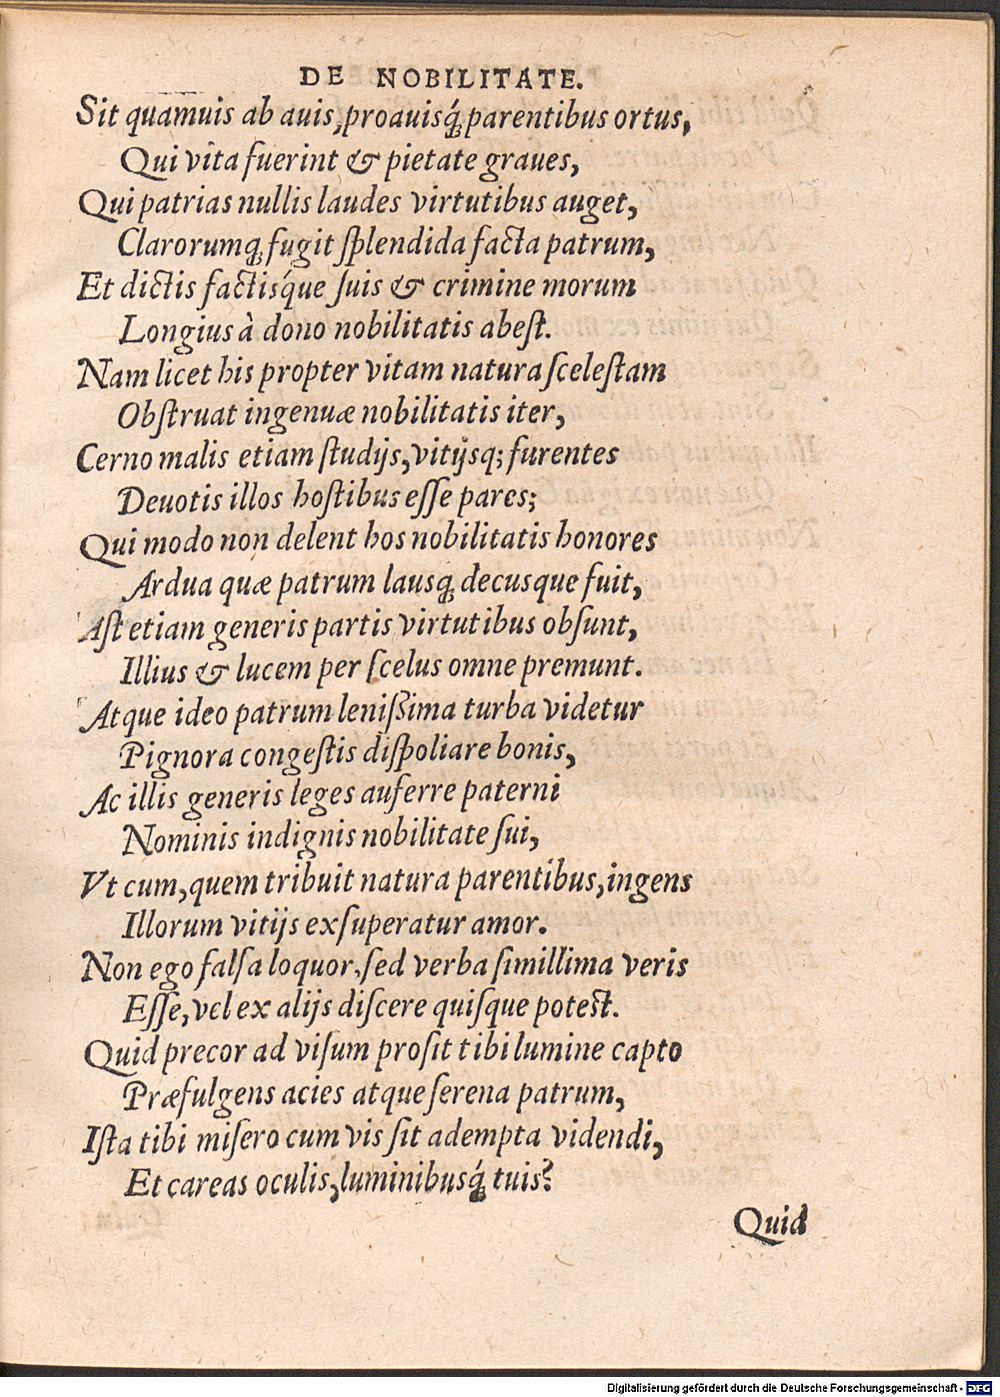 DE NOBILITATE.
Sit quamuis ab auis, proauisq́; parentibus ortus,
Qui vita fuerint & pietate graues,
Qui patrias nullis laudes virtutibus auget,
Clarorumq; fugit ſplendida facta patrum,
Et dictis factisq́ue ſuis & crimine morum
Longius à dono nobilitatis abeſt.
Nam licet his propter vitam natura ſceleſtam
Obſtruat ingenuæ nobilitatis iter,
Cerno malis etiam ſtudijs, vitijsq; furentes
Deuotis illos hoſtibus eſſe pares;
Qui modo non delent hos nobilitatis honores
Ardua quæ patrum lausq; decusque fuit,
Aſt etiam generis partis virtutibus obſunt,
Illius & lucem per ſcelus omne premunt.
Atque ideo patrum leniſsima turba videtur
Pignora congeſtis diſpoliare bonis,
Ac illis generis leges auferre paterni
Nominis indignis nobilitate ſui,
Vt cum, quem tribuit natura parentibus, ingens
Illorum vitijs exſuperatur amor.
Non ego falſa loquor, ſed verba ſimillima veris
Eſſe, vel ex alijs diſcere quiſque poteſt.
Quid precor ad viſum proſit tibi lumine capto
Præfulgens acies atque ſerena patrum,
Iſta tibi miſero cum vis ſit adempta videndi,
Et careas oculis, luminibusq́; tuis?
Quid
Digitalisierung gefördert durch die Deutsche Forschungsgemeinschaft - DFG